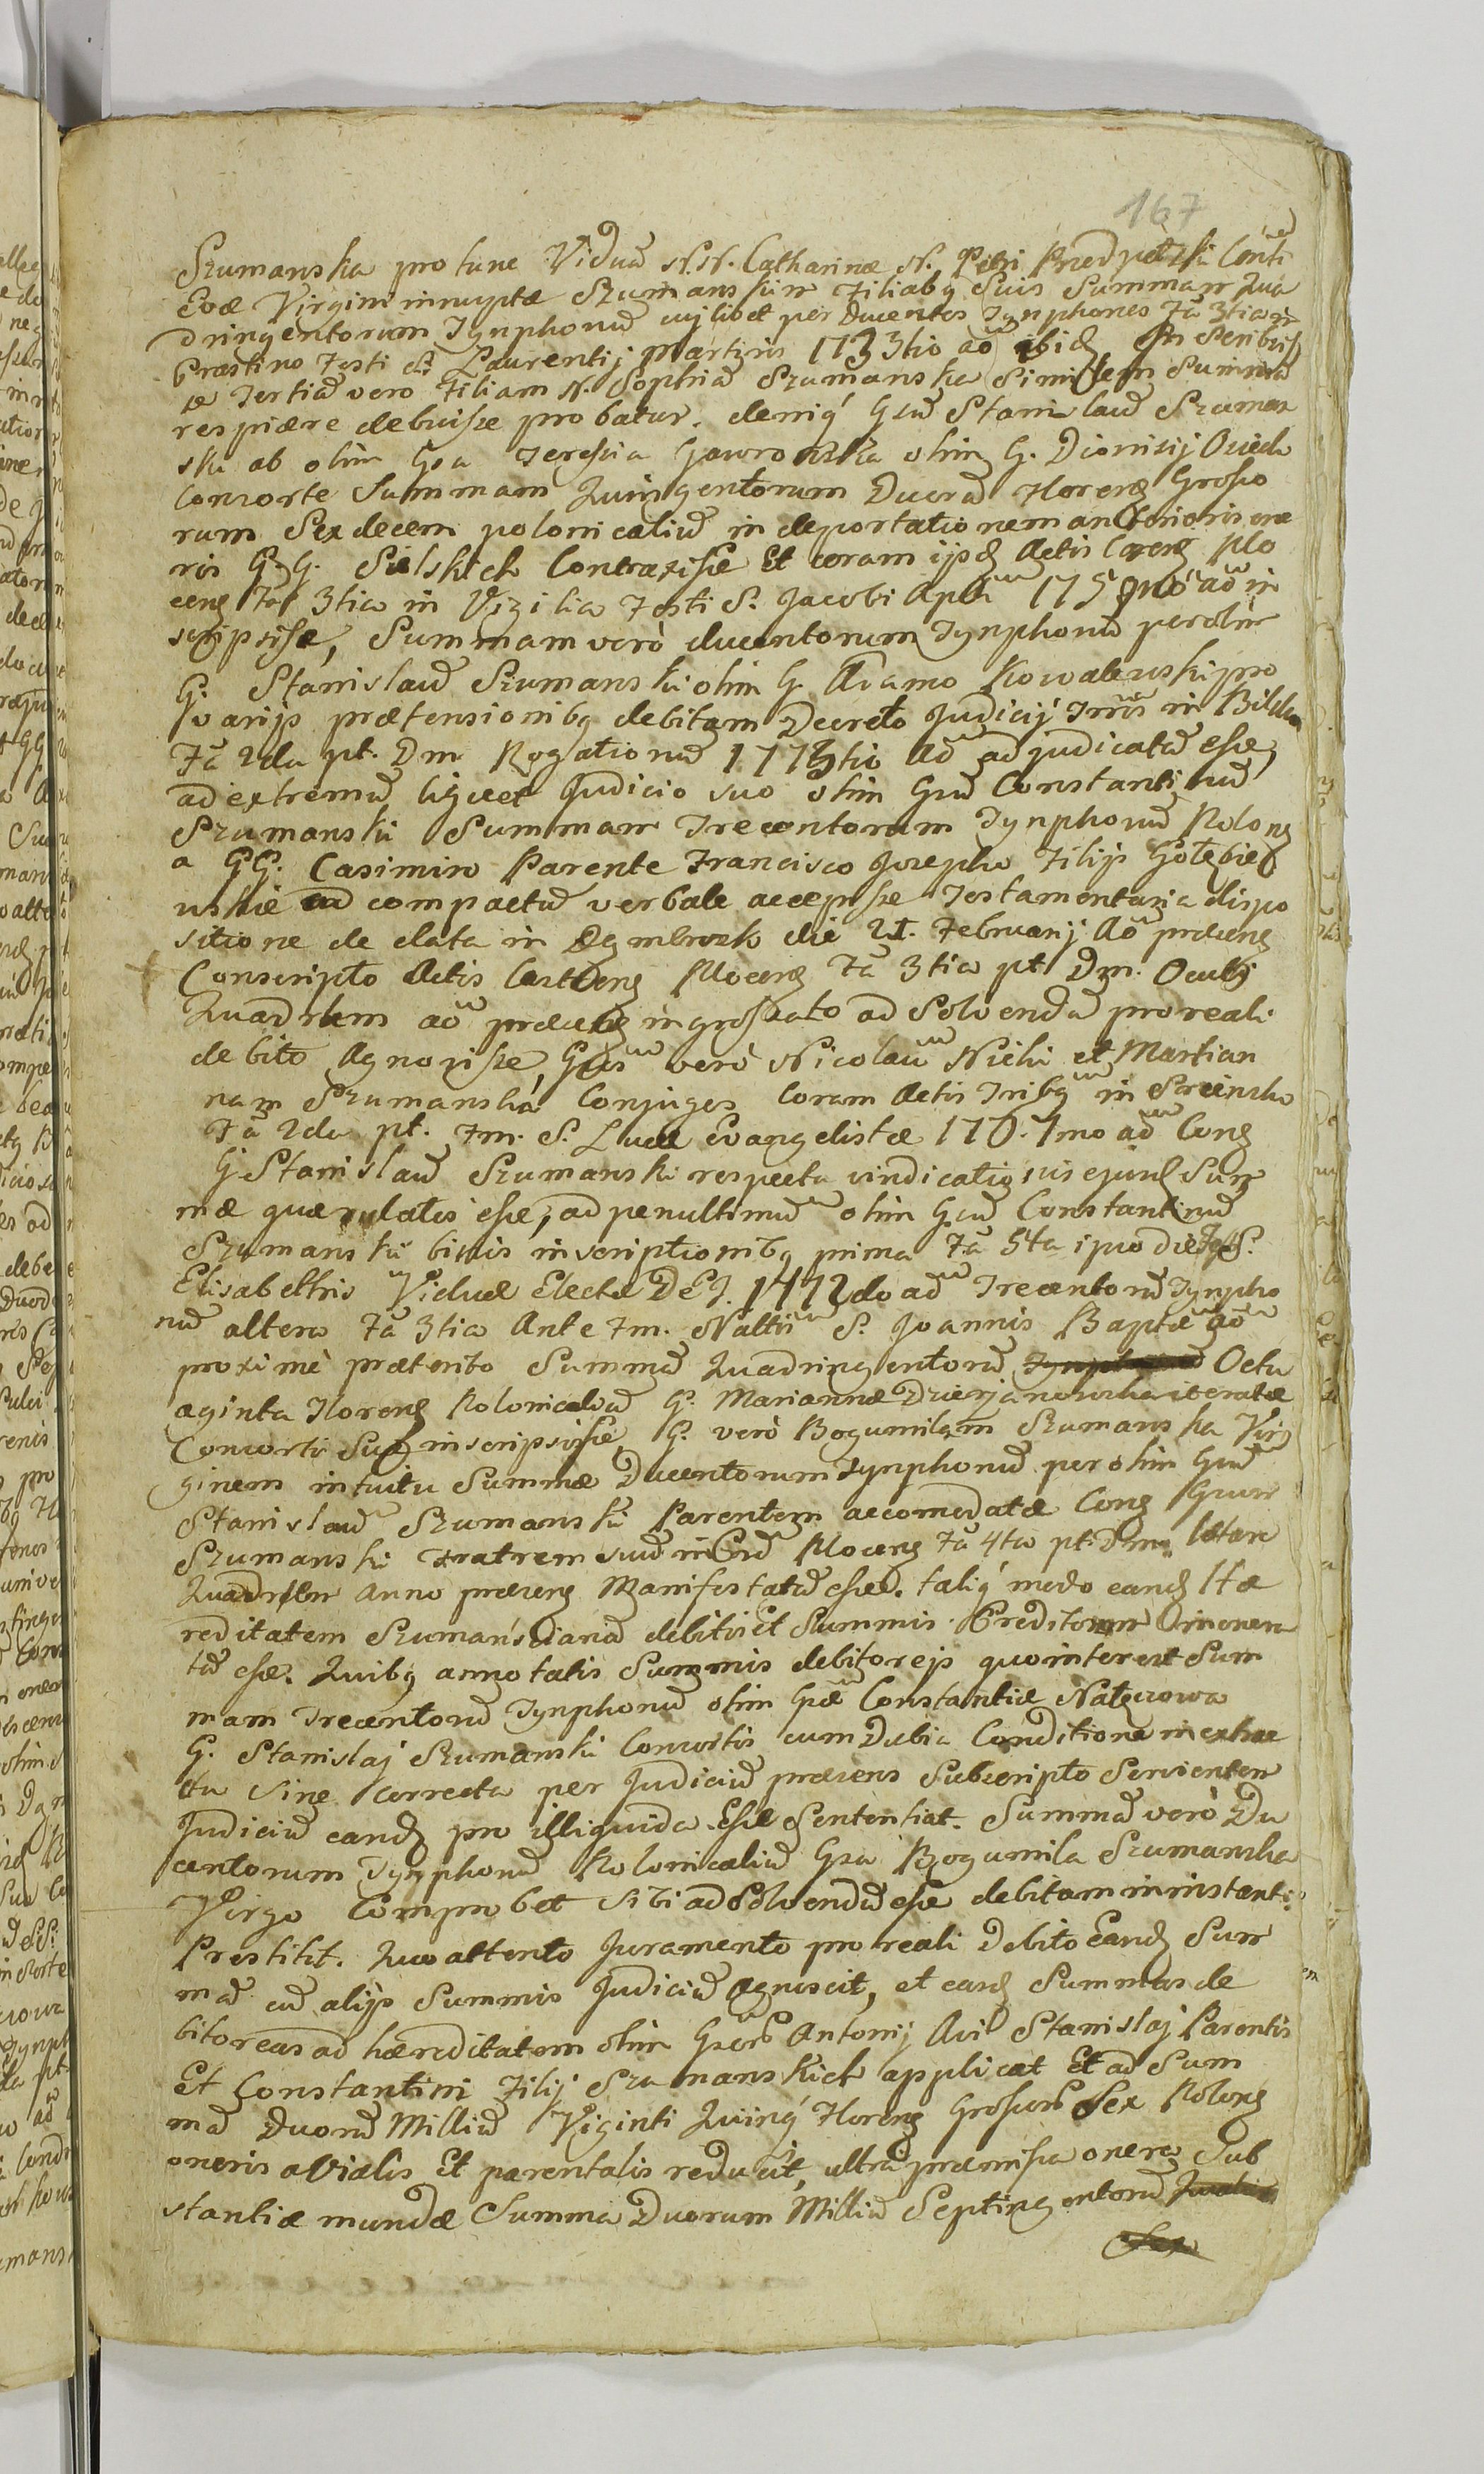 167
Szumanska pro tunc Viduã N.N. Catharinæ N. Petri Przedpełski Conti
Evæ Virgini innuptæ Szumanskim Filiabq Suis Summam Qua
dringentorum Tynphonũ cuilibet per Ducentos Tynphones Fã 3tia in
Crastino Festi S. Laurentij Martyris 1733tio aõ ibid In
Tertiã vero Filiam N. Sophiã Szumanska Similem Summã
respicere debuisse probatur. deniq Gsũ Stanislaũ Szuman
ski ab olim Gsa Teressia Gawronska olim G. Dionisij
Consorte Summam Quingentorum Duorũ Floreng Grosso
rum Sexdecem polonicaliũ in deportationem anterioris one
ris G.G. Sielskich Contraxisse Et coram ijsd Actis Castreng Plo
ceng Fã 3tia in Vigilia Festi S. Jacobi Apli 175 aõ in
scripsisse, Summam verò ducentorum Tynphonũ per olim
G. Stanislaũ Szumanski olim G. Adamo Kowalewski pro
varijs prætensionibq debitam Decreto Judicij Trris in Bielsko
Fã 2da pt. Dm Rogationũ 1773tio Aõ adjudicatã esse,
ad extremũ liqueet Judicio suo olim Gsũ Constantinũ
Szumanski Summam Trecentorum Tynphonũ Polong
a GG. Casimiro Parente Francisco Josepho Filijs Gołębiew
uskie ad compactũ verbale accepisse Testamentaria dispo
sitione de data in Dembrosk die 21. Februarij Aõ præseng
Conscripto Actis Castreng Ploceng Fã 3tia pt Dm. Oculi
Quadrlem aõ præseng ingrossato ad Solvendũ pro reali
debito Agnovisse, Gsos verò Nicolaũ Nicki et Marian
nam Szumanská Conjuges Coram Actis Tribq in Sreinsko
Fã 2da pt. Fm. S. Lucæ Evangelistæ 170.1mo aõ Cong
G. Stanislaũ Szumanski respectu vindicationis ejusd Sum
mæ quærulatis esse, ad penultimũ olim Gsũ Constantinũ
Szumanski binis inscriptionibq prima Fã 5ta ipso die Festi S.
Elisabethis Viduæ Electa DEJ. 1772do aõ Trecentorũ Tynpho
nũ altera Fã 3tia Ante Fm. Nattis S. Joannis Baptæ aõ
proximè præterito Summã Quadringentorũ Octu
aginta Floreng Polonicaliũ G. Mariannæ Dzierzanowska iteratæ
Consorti Suæ inscripsisse, G. verò Bogumilam Szumanska Vir
ginem intuitu Summæ Ducentorum Tynphonũ per olim Gsũ
Stanislaũ Szumanski Parentem accomodatæ Cong Gsum
Szumanski Fratrem suũ in Ploceng Fã 4ta pt. Dm Lætare
Quadrlem Anno præseng Manifestatã esse. taliq modo eand Hæ
reditatem Szumańscianã debitis Et Summis Creditorum
tã esse. Quibq annotatis Summis debitoreis quo interest Sum
mam Trecentorũ Tynphonũ olim Gsæ Constantiæ Natęczowa
G. Stanislaj Szumanski Consortis cum Dubia Conditione in extrac
tu Sine correcta per Judiciũ præsens Subscripto Servientem
Judiciũ eand pro illiquida Esse Sententiat. Summã verò Du
centorum Tynphonũ Polonicaliũ Gsa Bogumila Szumanska
Virgo Comprobet Sibi ad Solvendũ esse debitam in instanti
Prestitit. Quo attento Juramento pro reali Debito Eand Sum
mã cũ alijs Summis Judiciũ Agnoscit, et easd Summas de
bitoreas ad hæreditatem olim Gsor Antonij Avi Stanislaj Parentis
Et Constantini Filij Szumanskich applicat Et ad Sum
mã Duorũ Milliũ Viginti Quinq Floreng Grossor Sex Polong
oneris avialis Et parentalis reducit, ultra præmissa onera Sub
stantiæ mundæ Summa Duorum Milliũ Septingentorũ